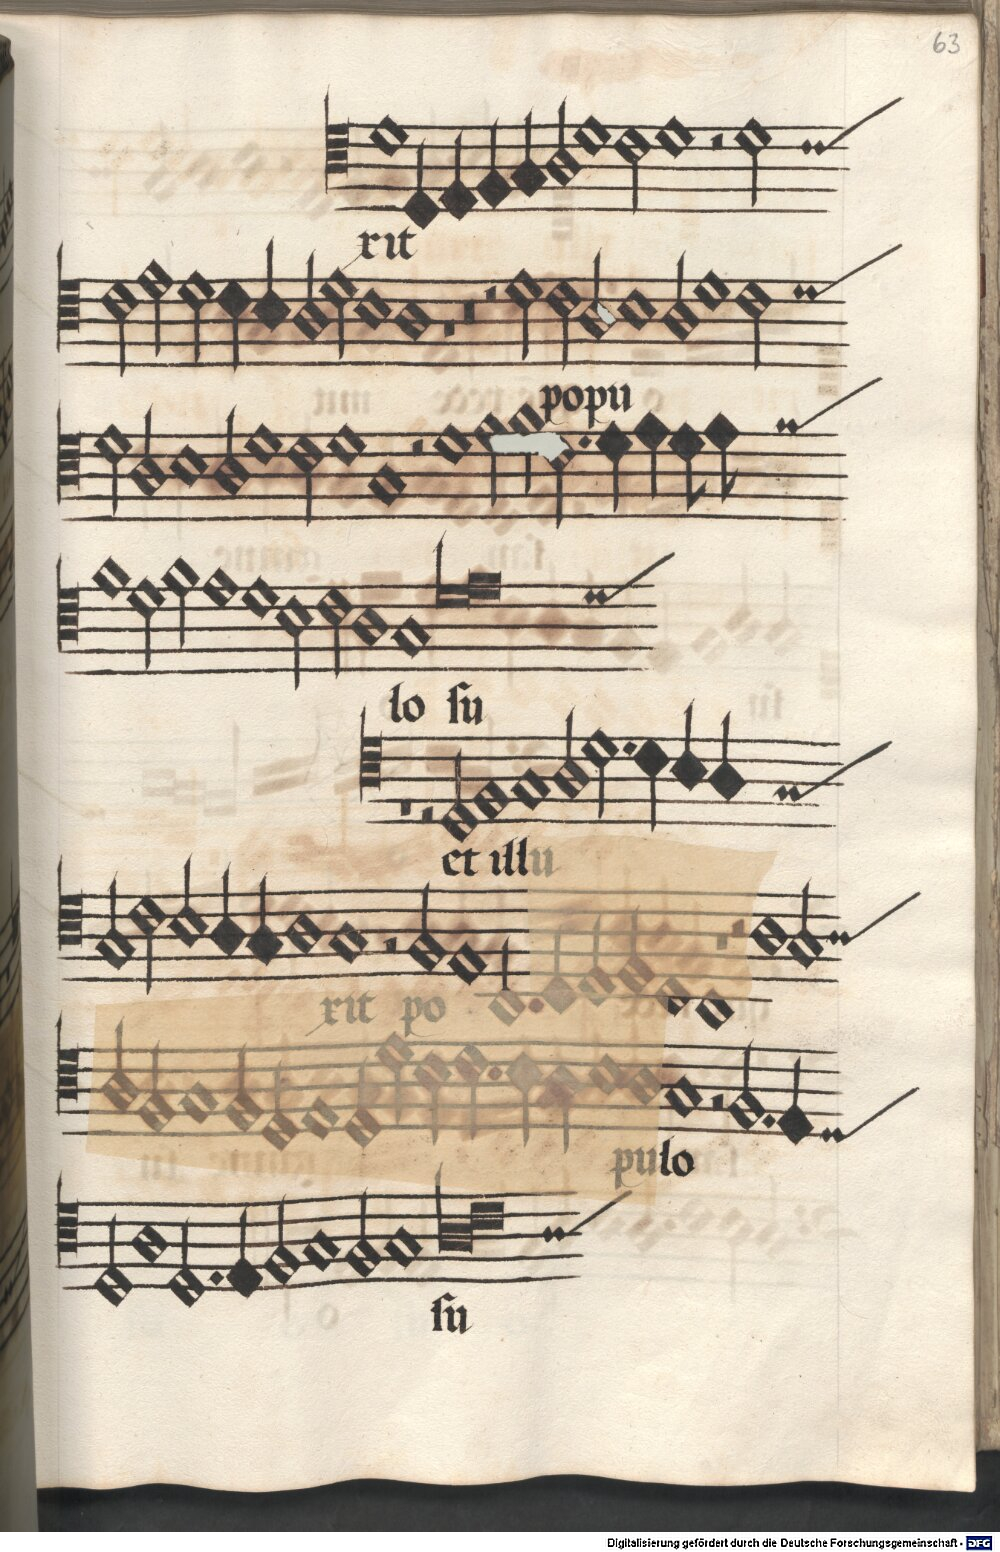 63
rit
popu
lo su
et illu
rit po
pulo
su
Digitalisierung gefördert durch die Deutsche Forschungsgemeinschaft - DFG